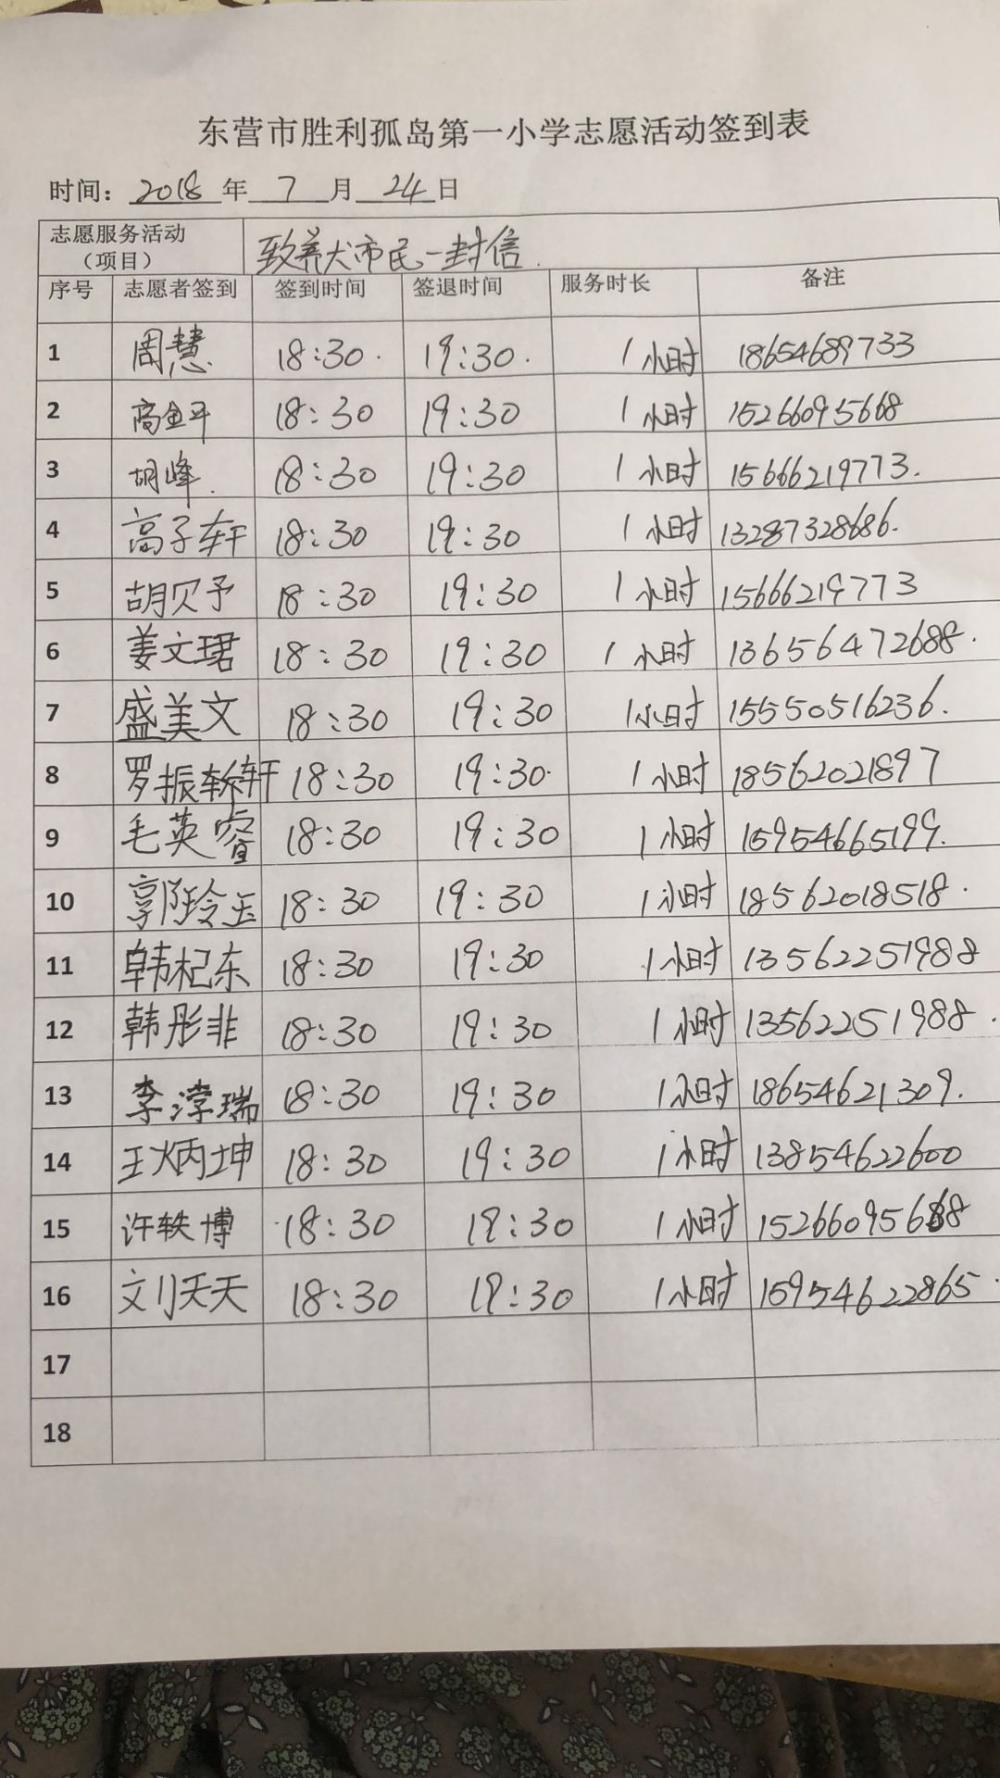 东营市胜利孤岛第一小学志愿活动签到表
时间：2018年 7 月 24 日
志愿服务活动（项目） 致养犬市民一封信.
序号 志愿者签到 签到时间 签退时间 服务时长 备注
1 周慧 18:30 19:30 1小时 18654689733
2 高金平 18:30 19:30 1小时 15266095668
3 胡峰 18:30 19:30 1小时 15666219773.
4 高子轩 18:30 19:30 1小时 13287328686.
5 胡贝予 18:30 19:30 1小时 15666219773
6 姜文珺 18:30 19:30 1小时 13656472688.
7 盛美文 18:30 19:30 1小时 15550516236.
8 罗振轩 18:30 19:30 1小时 18562021897
9 毛英睿 18:30 19:30 1小时 15954665199.
10 郭玲玉 18:30 19:30 1小时 18562018518.
11 韩杞东 18:30 19:30 1小时 13562251988
12 韩彤非 18:30 19:30 1小时 13562251988.
13 李瑞 18:30 19:30 1小时 18654621309.
14 王炳坤 18:30 19:30 1小时 13854622600
15 许轶博 18:30 19:30 1小时 15266095668
16 刘天天 18:30 19:30 1小时 15954622865.
17
18